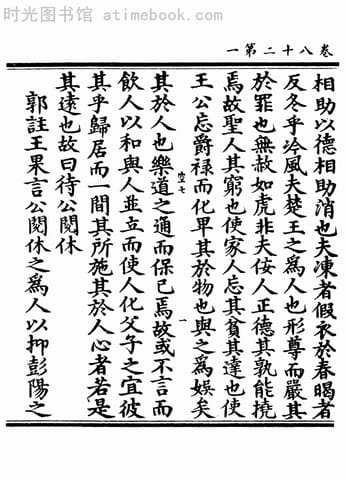 时光图书馆 - atimebook.com
卷八十二第一
相助以德相助消也夫凍者假衣於春暍者
反冬乎冷風夫楚王之爲人也形尊而嚴其
於罪也無赦如虎非夫佞人正德其孰能撓
焉故聖人其窮也使家人忘其貧其達也使
王公忘爵祿而化卑其於物也與之爲娛矣
空七 一
其於人也樂道之通而保己焉故或不言而
飲人以和與人並立而使人化父子之宜彼
其乎歸居而一閒其所施其於人心者若是
其遠也故曰待公閱休
郭註王果言公閱休之爲人以抑彭陽之